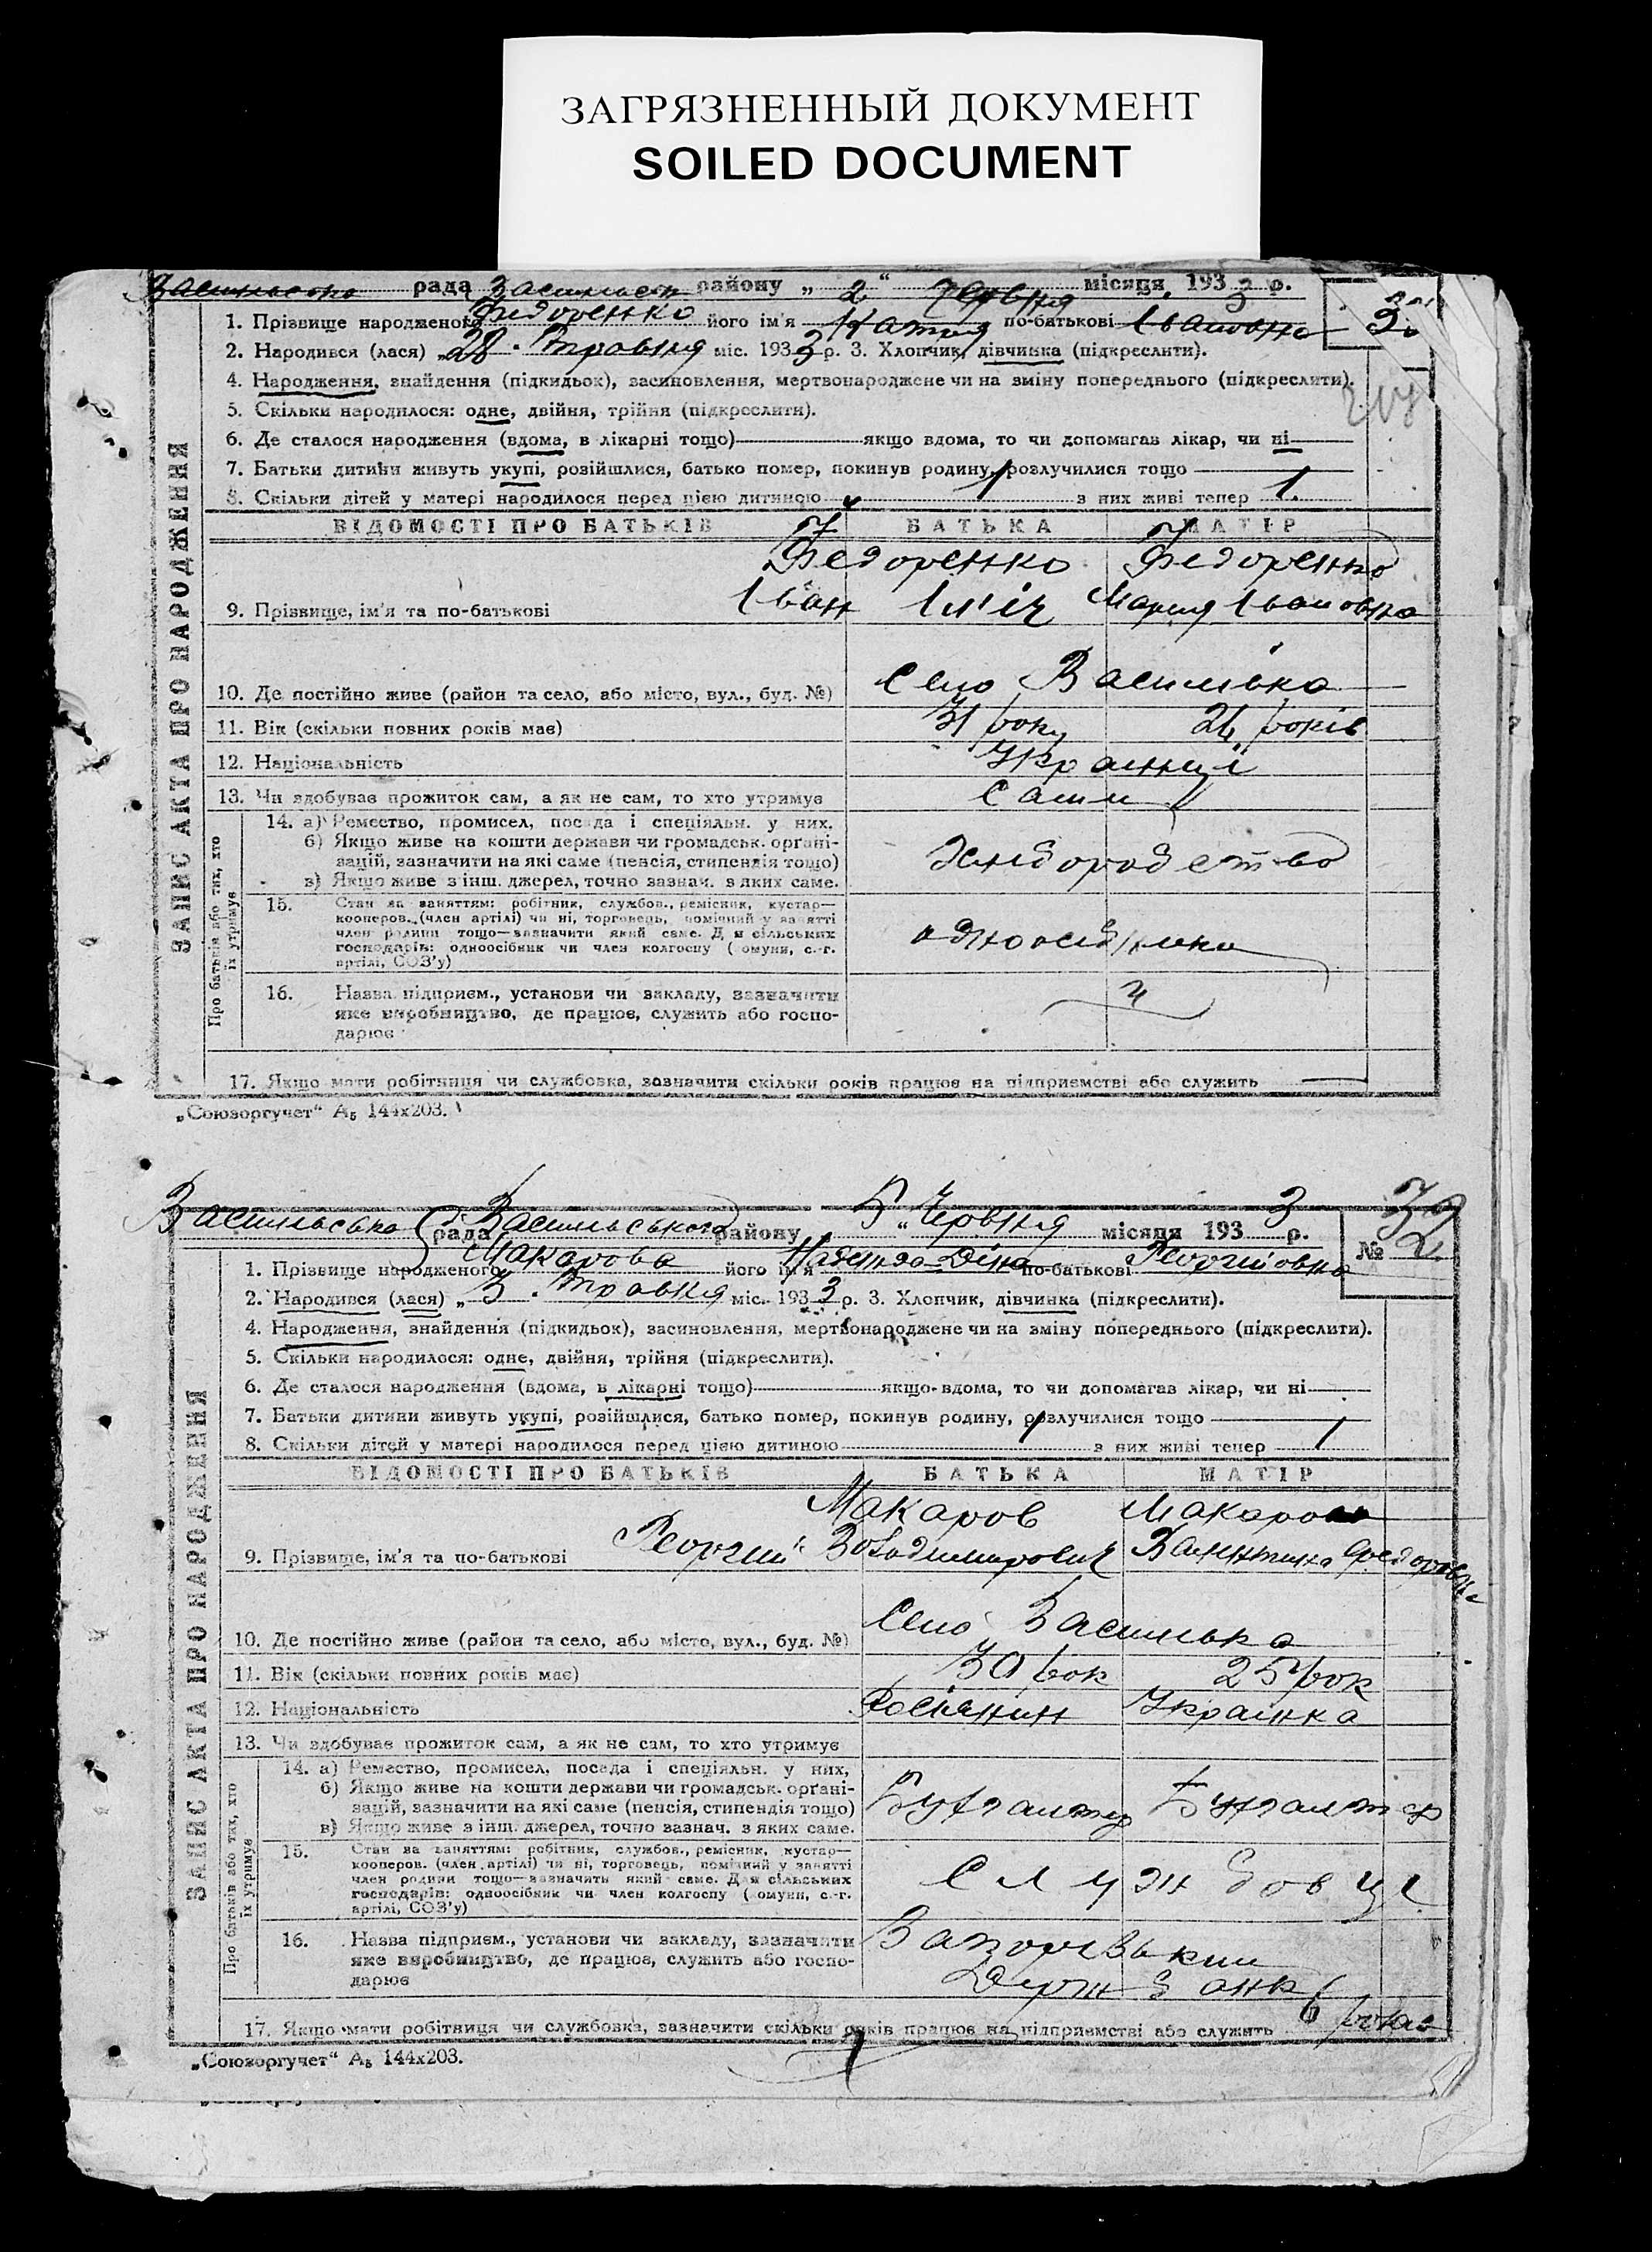 ЗАГРЯЗНЕННЫЙ ДОКУМЕНТ
SOILED DOCUMENT
рада району „ 2 “ Червня місяця 193 3 р.
1. Прізвище народженого Федоренко його ім'я по-батькові Івановна
2. Народився (лася) „ 28 . Травня міс. 193 3 р. 3. Хлопчик, дівчинка (підкреслити).
4. Народження, знайдення (підкидьок), засиновлення, мертвонароджене чи на зміну попереднього (підкреслити).
5. Скільки народилося: одне, двійня, трійня (підкреслити).
6. Де сталося народження (вдома, в лікарні тощо) якщо вдома, то чи допомагав лікар, чи ні
7. Батьки дитини живуть укупі, розійшлися, батько помер, покинув родину, розлучилися тощо
8. Скільки дітей у матері народилося перед цією дитиною 1 з них живі тепер 1.
ВІДОМОСТІ ПРО БАТЬКІВ БАТЬКА МАТІР
Федоренко Федоренко
9. Прізвище, ім'я та по-батькові Іван Ілліч Мария Івановна
10. Де постійно живе (район та село, або місто, вул., буд. №) Село Василівка
11. Вік (скільки повних років має) 31 року років
12. Національність Українці
13. Чи здобував прожиток сам, а як не сам, то хто утримує Сами
14. а) Ремество, промисел, посада і спеціяльн. у них.
б) Якщо живе на кошти держави чи громадськ. орґані-
зацій, зазначити на які саме (пенсія, стипендія тощо) Хліборобство
в) Якщо живе з інш. джерел, точно зазнач. з яких саме.
15. Стан за заняттям: робітник, службов., ремісник, кустар—
кооперов. (член артілі) чи ні, торговець, помічний у занятті
член родини тощо—зазначити який саме. Для сільських
господарів: одноосібник чи член колгоспу (комуни, с.-г.
артілі, СОЗ'у) одноосібники
16. Назва підприєм., установи чи закладу, зазначити
яке виробництво, де працює, служить або госпо-
дарює
17. Якщо мати робітниця чи службовка, зазначити скільки років працює на підприємстві або служить
ЗАПИС АКТА ПРО НАРОДЖЕННЯ
Про батьків або тих, хто
їх утримує
„Союзоргучет“ А₅ 144х203.
Васильська рада Васильського району „ 5 “ Червня місяця 193 3 р.
№
1. Прізвище народженого Макарова його ім'я по-батькові Георгіївна
2. Народився (лася) „ 3 . Травня міс. 193 3 р. 3. Хлопчик, дівчинка (підкреслити).
4. Народження, знайдення (підкидьок), засиновлення, мертвонароджене чи на зміну попереднього (підкреслити).
5. Скільки народилося: одне, двійня, трійня (підкреслити).
6. Де сталося народження (вдома, в лікарні тощо) якщо вдома, то чи допомагав лікар, чи ні
7. Батьки дитини живуть укупі, розійшлися, батько помер, покинув родину, розлучилися тощо
8. Скільки дітей у матері народилося перед цією дитиною 1 з них живі тепер 1
ВІДОМОСТІ ПРО БАТЬКІВ БАТЬКА МАТІР
Макаров Макарова
9. Прізвище, ім'я та по-батькові Георгий Володимирович Валентина Федоровна
10. Де постійно живе (район та село, або місто, вул., буд. №) Село Василівка
11. Вік (скільки повних років має) 30 рок 25 рок
12. Національність Росіянин Українка
13. Чи здобував прожиток сам, а як не сам, то хто утримує
14. а) Ремество, промисел, посада і спеціяльн. у них,
б) Якщо живе на кошти держави чи громадськ. орґані-
зацій, зазначити на які саме (пенсія, стипендія тощо) Бухгалтер Бухгалтер
в) Якщо живе з інш. джерел, точно зазнач. з яких саме.
15. Стан за заняттям: робітник, службов., ремісник, кустар—
кооперов. (член артілі) чи ні, торговець, помічний у занятті
член родини тощо—зазначити який саме. Для сільських Службовці
господарів: одноосібник чи член колгоспу (комуни, с.-г.
артілі, СОЗ'у)
16. Назва підприєм., установи чи закладу, зазначити
яке виробництво, де працює, служить або госпо-
дарює Держбанк
17. Якщо мати робітниця чи службовка, зазначити скільки років працює на підприємстві або служить 6 років
ЗАПИС АКТА ПРО НАРОДЖЕННЯ
Про батьків або тих, хто
їх утримує
„Союзоргучет“ А₅ 144х203.